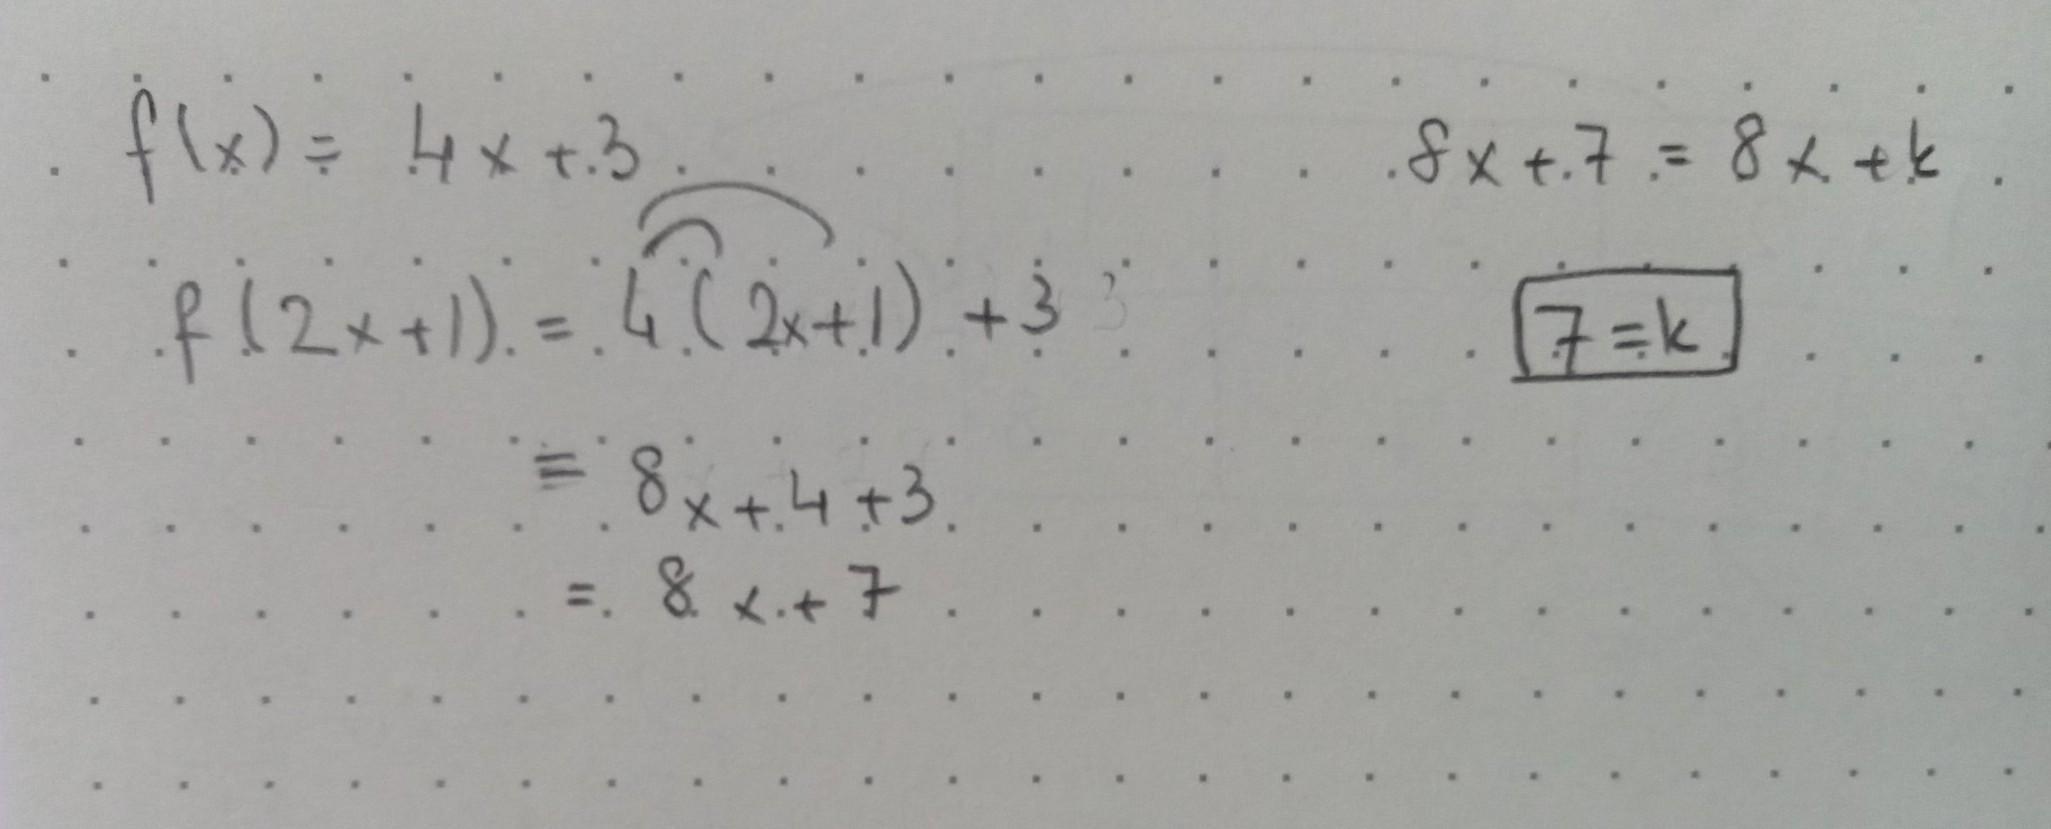 f(x) = 4x + 3
f(2x+1) = 4(2x+1) + 3
= 8x + 4 + 3
= 8x + 7
8x + 7 = 8x + k
7 = k